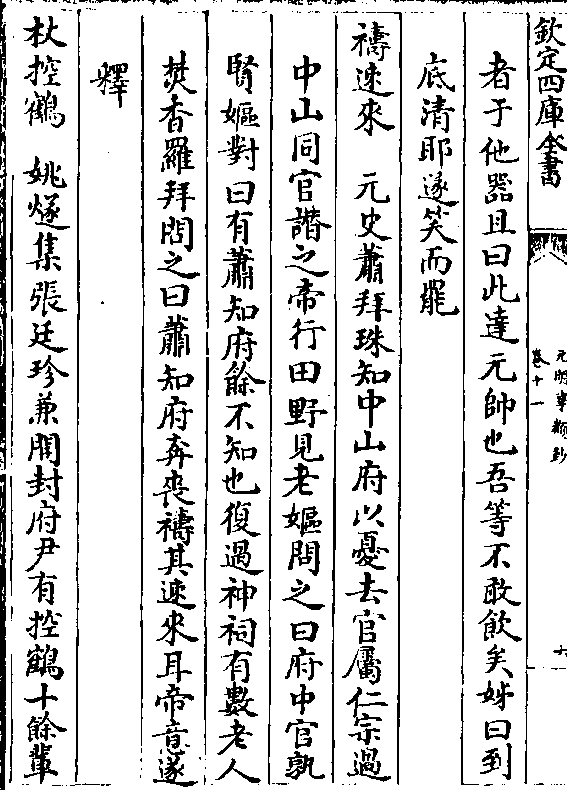 欽定四庫全書
元明事類鈔
卷十一
十
者于他器且曰此達元帥也吾等不敢飲矣姊曰到
底清耶遂笑而罷
禱速來　元史蕭拜珠知中山府以憂去官屬仁宗過
中山同官譖之帝行田野見老嫗問之曰府中官孰
賢嫗對曰有蕭知府餘不知也復過神祠有數老人
焚香羅拜問之曰蕭知府奔喪禱其速來耳帝意遂
釋
杖控鶴　姚燧集張廷珍兼開封府尹有控鶴十餘輩